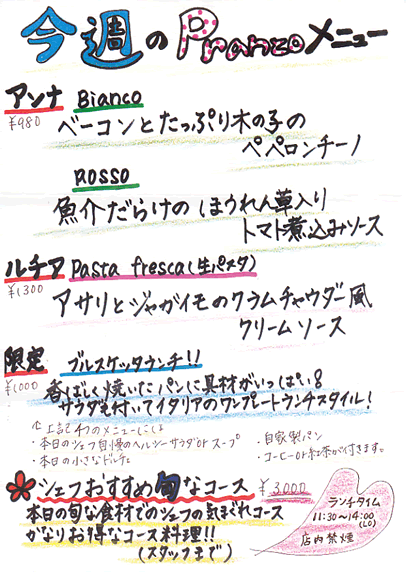 今週のPranzoメニュー
アンナ Bianco
¥980
ベーコンとたっぷり木の子の
ペペロンチーノ
ROSSO
魚介だらけのほうれん草入り
トマト煮込みソース
ルチア Pasta fresca(生パスタ)
¥1300
アサリとジャガイモのクラムチャウダー風
クリームソース
限定 ブルスケッタランチ!!
¥1000
香ばしく焼いたパンに具材がいっぱい♪
サラダも付いてイタリアのワンプレートランチスタイル!
上記4つのメニューには
・本日のシェフ自慢のヘルシーサラダorスープ
・自家製パン
・本日の小さなドルチェ
・コーヒーor紅茶が付きます。
シェフおすすめ旬なコース ¥3000
本日の旬な食材でのシェフの気まぐれコース
かなりお得なコース料理!!
(スタッフまで)
ランチタイム
11:30〜14:00
(LO)
店内禁煙